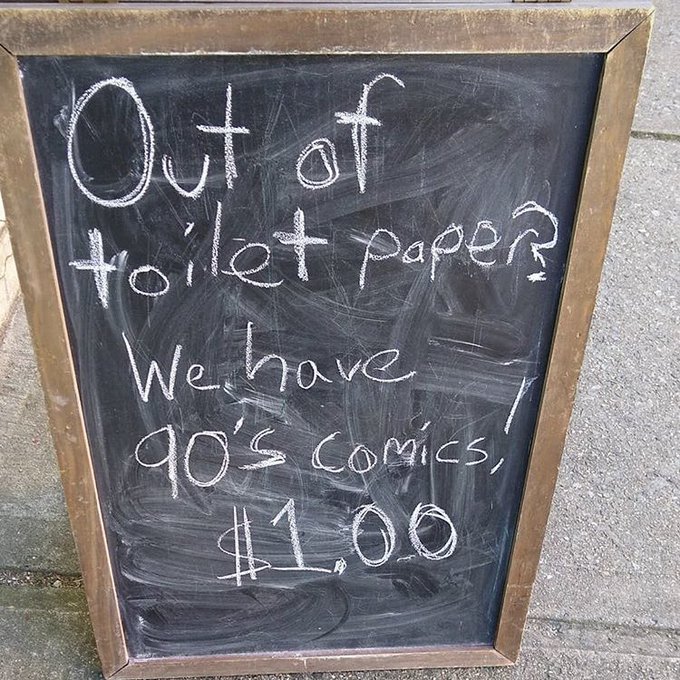 Out of
toilet paper?
We have
90's comics,!
$1.00